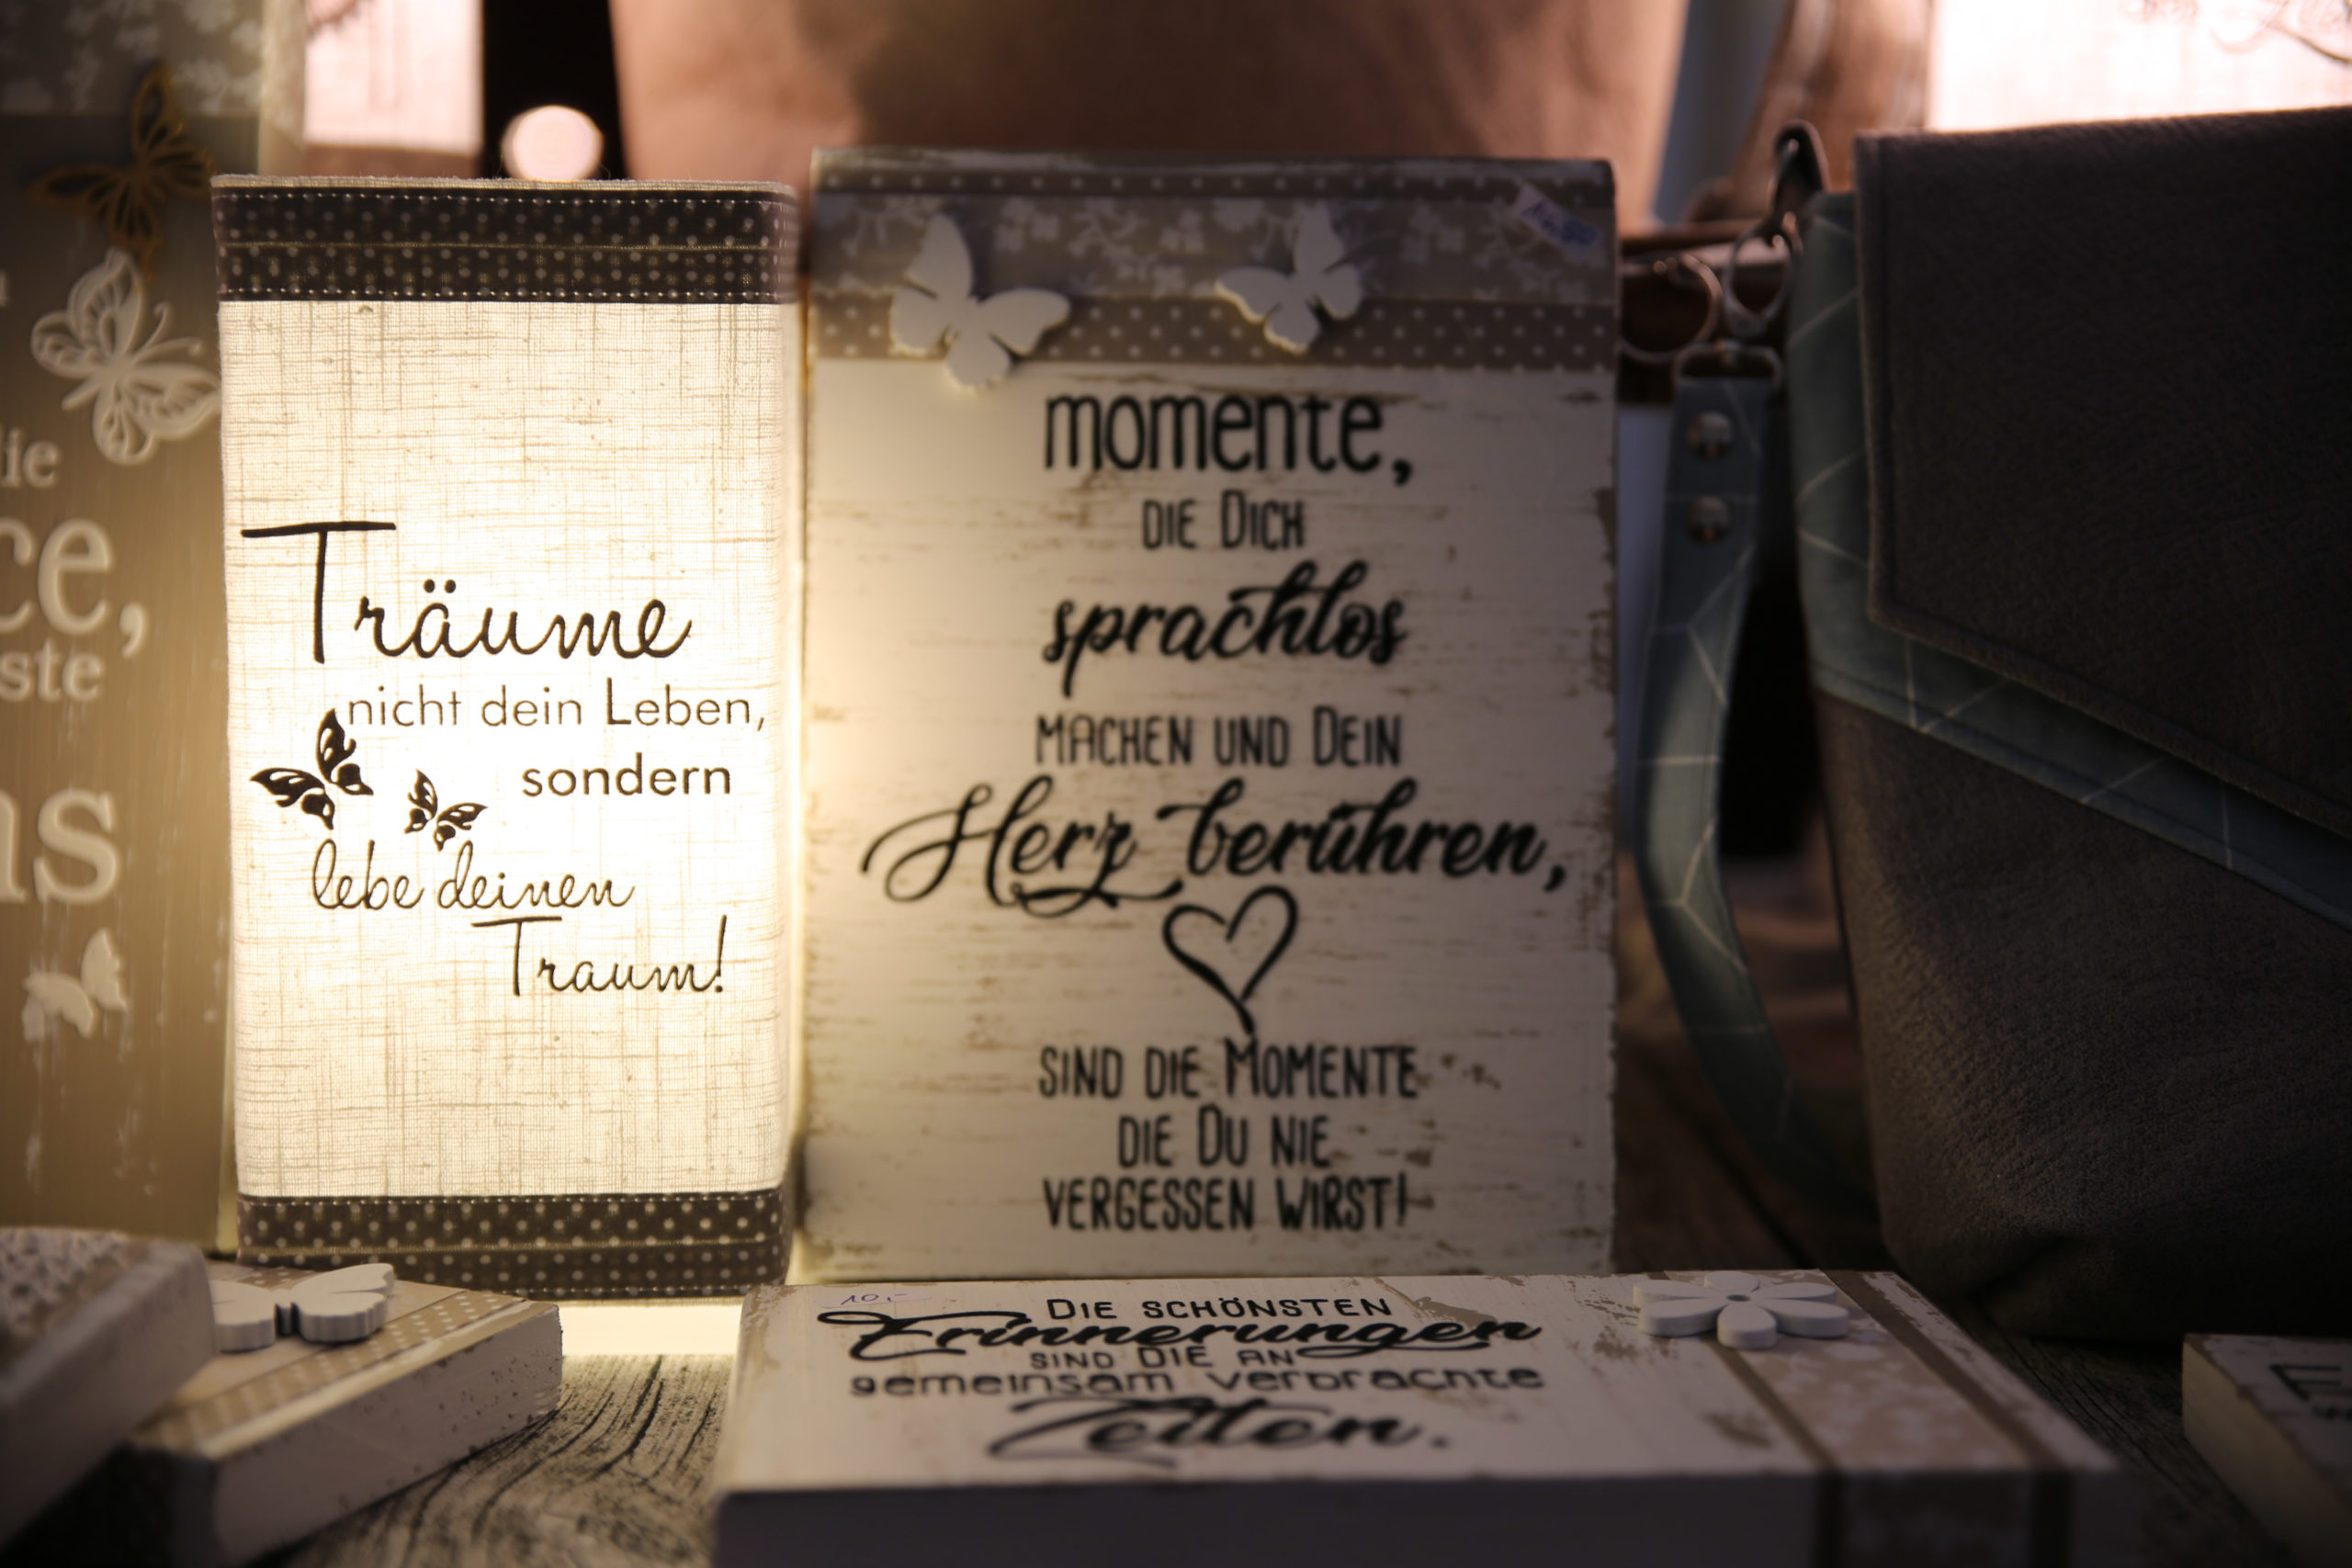 die
ce,
ste
ns
Träume
nicht dein Leben,
sondern
lebe deinen
Traum!
momente,
DIE DICH
sprachlos
MACHEN UND DEIN
Herz berühren,
SIND DIE MOMENTE
DIE DU NIE
VERGESSEN WIRST!
10,-
DIE SCHÖNSTEN
Erinnerungen
SIND DIE AN
gemeinsam verbrachte
Zeiten.